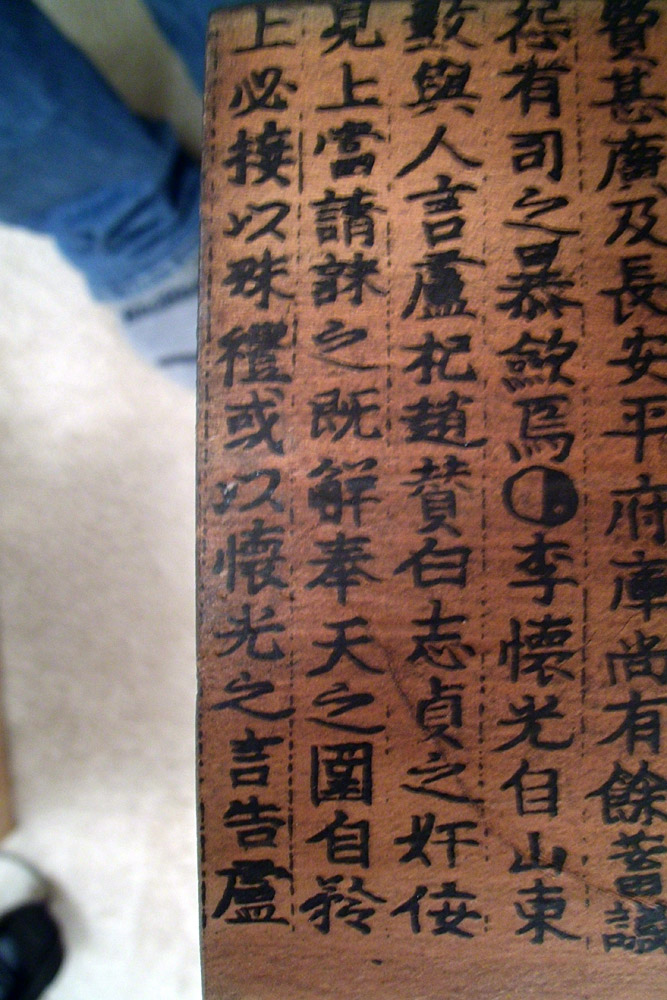 費甚廣及長安平府庫尚有餘蓄議
怨有司之暴斂焉李懷光自山東
數與人言盧杞趙贊白志貞之奸佞
見上當請誅之既解奉天之圍自矜
上必接以殊禮或以懷光之言告盧